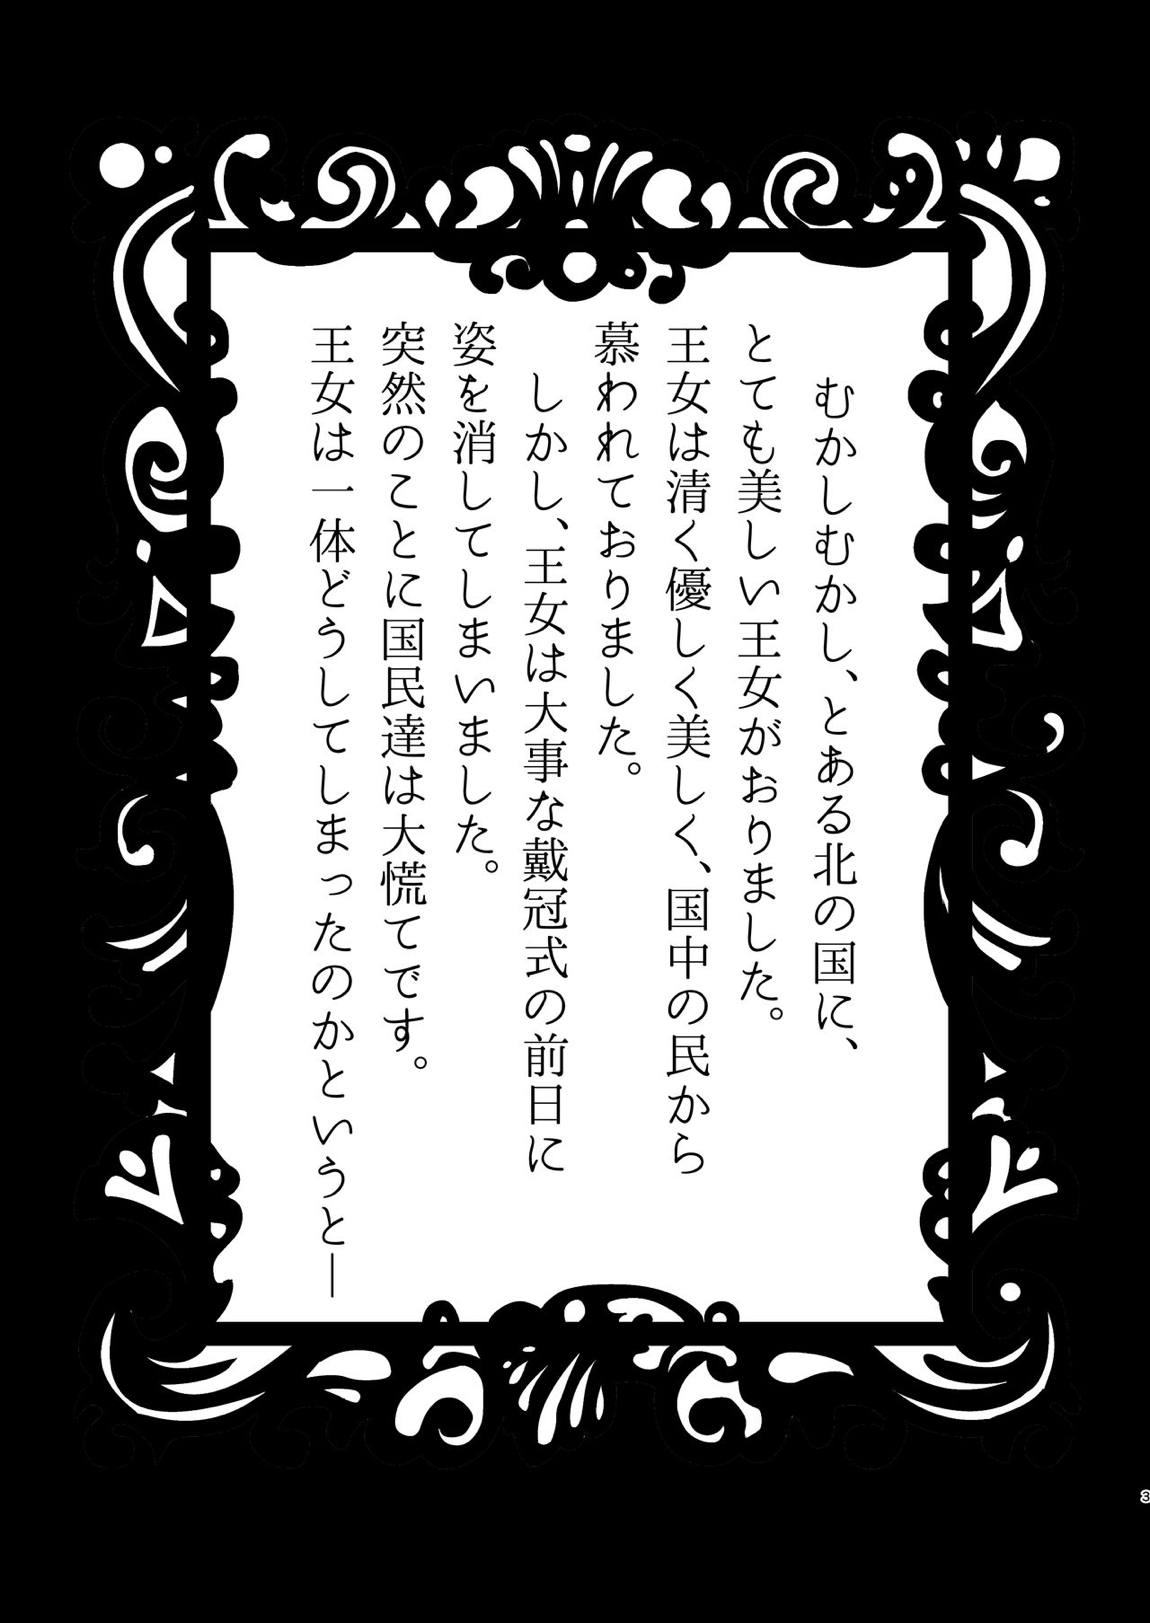 むかしむかし、とある北の国に、
とても美しい王女がおりました。
王女は清く優しく美しく、国中の民から
慕われておりました。
しかし、王女は大事な戴冠式の前日に
姿を消してしまいました。
突然のことに国民達は大慌てです。
王女は一体どうしてしまったのかというと―
3